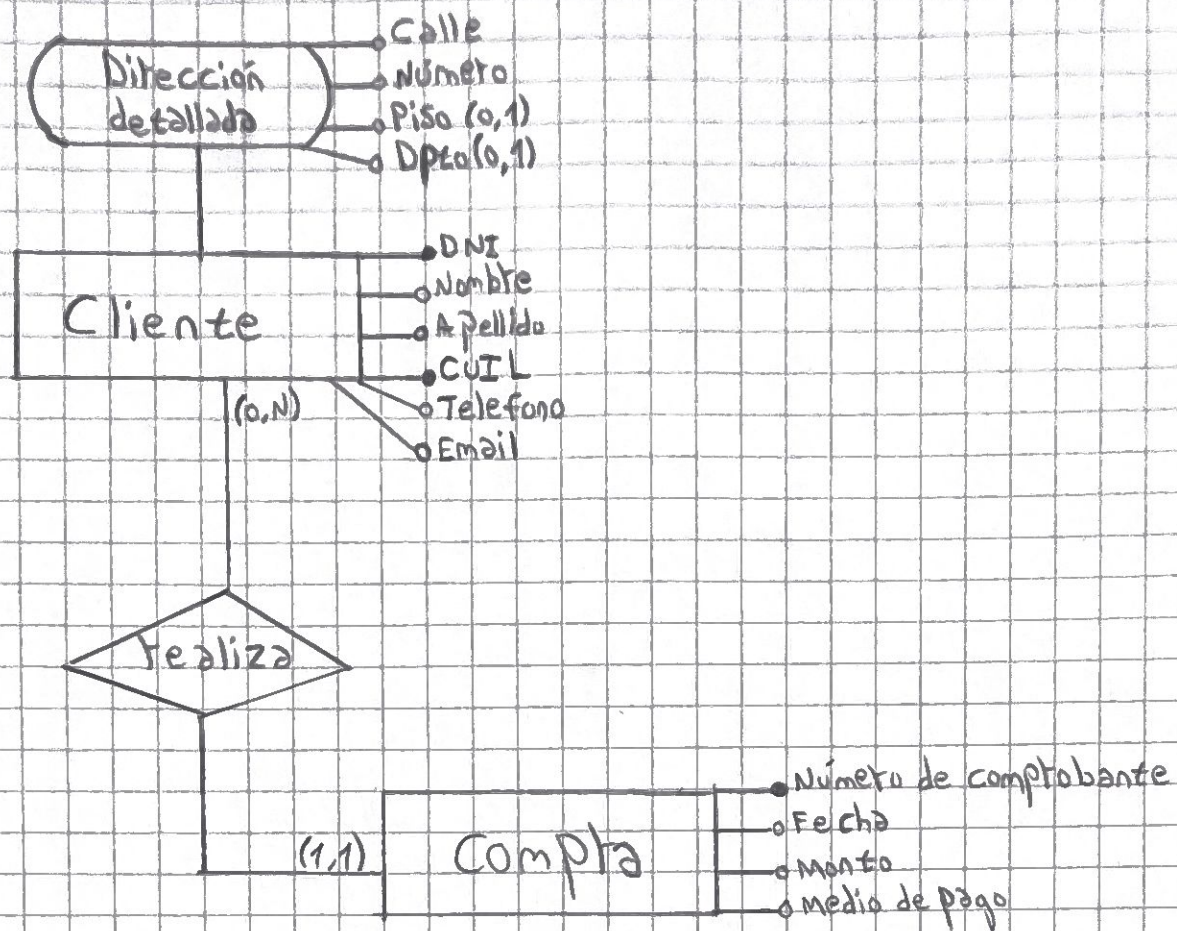 Dirección
detallada
Calle
Número
Piso (0,1)
Dpto (0,1)
Cliente
DNI
Nombre
Apellido
CUIL
Telefono
Email
(0,N)
realiza
(1,1)
Compra
Número de comprobante
Fecha
Monto
Medio de pago